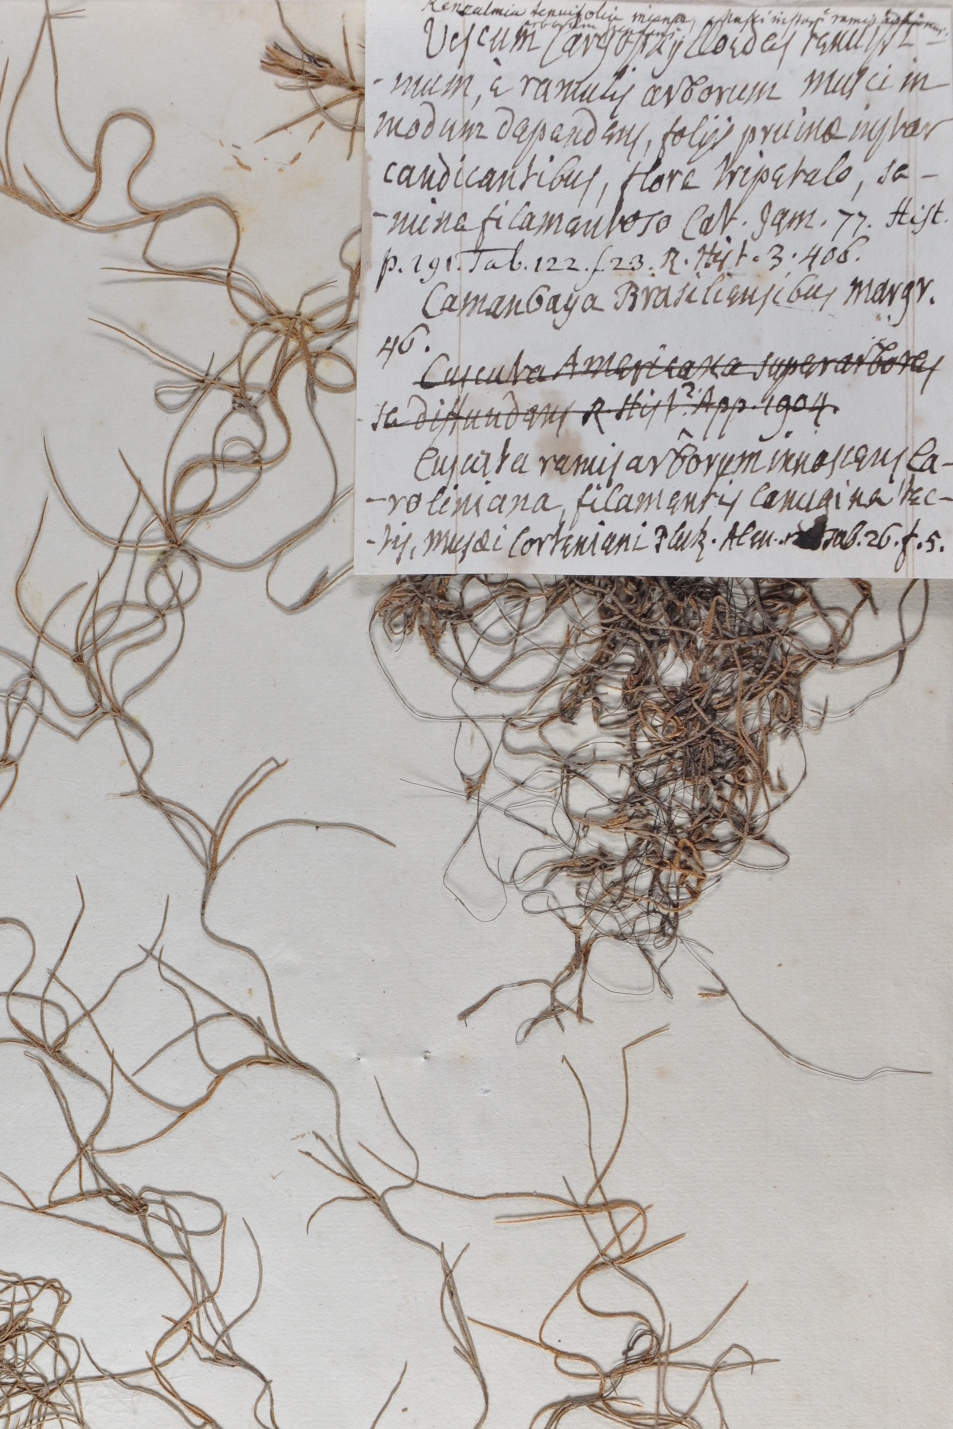 Renealmia tenuifolia incana, Musci instar è ramis dependens.
Viscum Caryophylloides tenuissi-
-mum, è ramulis arborum Musci in
modum dependens, folijs pruinæ instar
candicantibus, flore tripetalo, se-
-mine filamentoso Cat. Jam. 77. Hist.
p. 191. Tab. 122. f. 23. R. Hist. 3. 406.
Camanbaya Brasiliensibus Margr.
46.
Cuscuta Americana super arbores
se diffundens R. Hist. App. 1904.
Cuscuta ramis arborum innascens Ca-
-roliniana, filamentis lanugine tec-
-tis, musæi Corteniani Pluk. Alm. Tab. 26. f. 5.